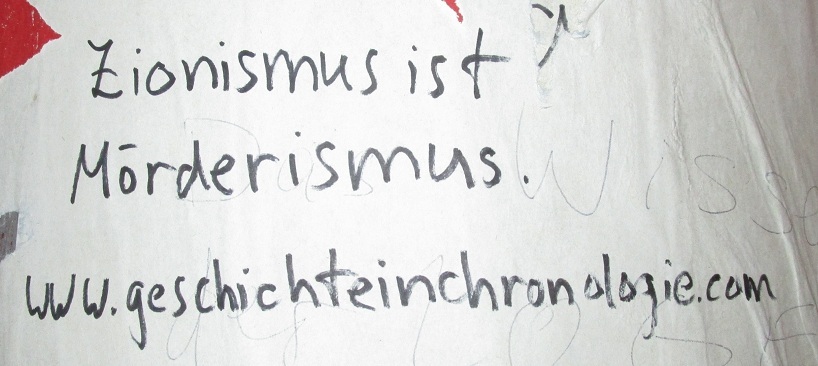 Zionismus ist
Mörderismus.
www.geschichteinchronologie.com